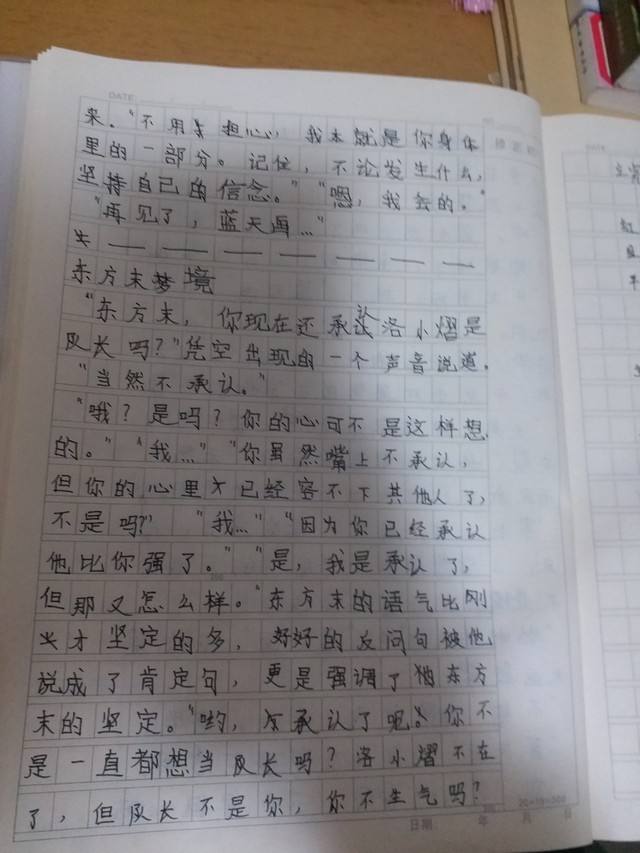 DATE
来。"不用担心，我本就是你身体
里的一部分。记住，不论发生什么，
坚持自己的信念。" "嗯，我会的。"
"再见了，蓝天画…"
东方末梦境
"东方末，你现在还承认洛小熠是
队长吗？"凭空出现的一个声音说道。
"当然不承认。"
"哦？是吗？你的心可不是这样想
的。" "我…" "你虽然嘴上不承认，
但你的心里已经容不下其他人了，
不是吗？" "我…" "因为你已经承认
他比你强了。" "是，我是承认了，
但那又怎么样。"东方末的语气比刚
才坚定的多，好好的反问句被他
说成了肯定句，更是强调了东方
末的坚定。"哟，承认了呢。你不
是一直都想当队长吗？洛小熠不在
了，但队长不是你，你不生气吗？
20×15=300
日期： 年 月 日
DATE